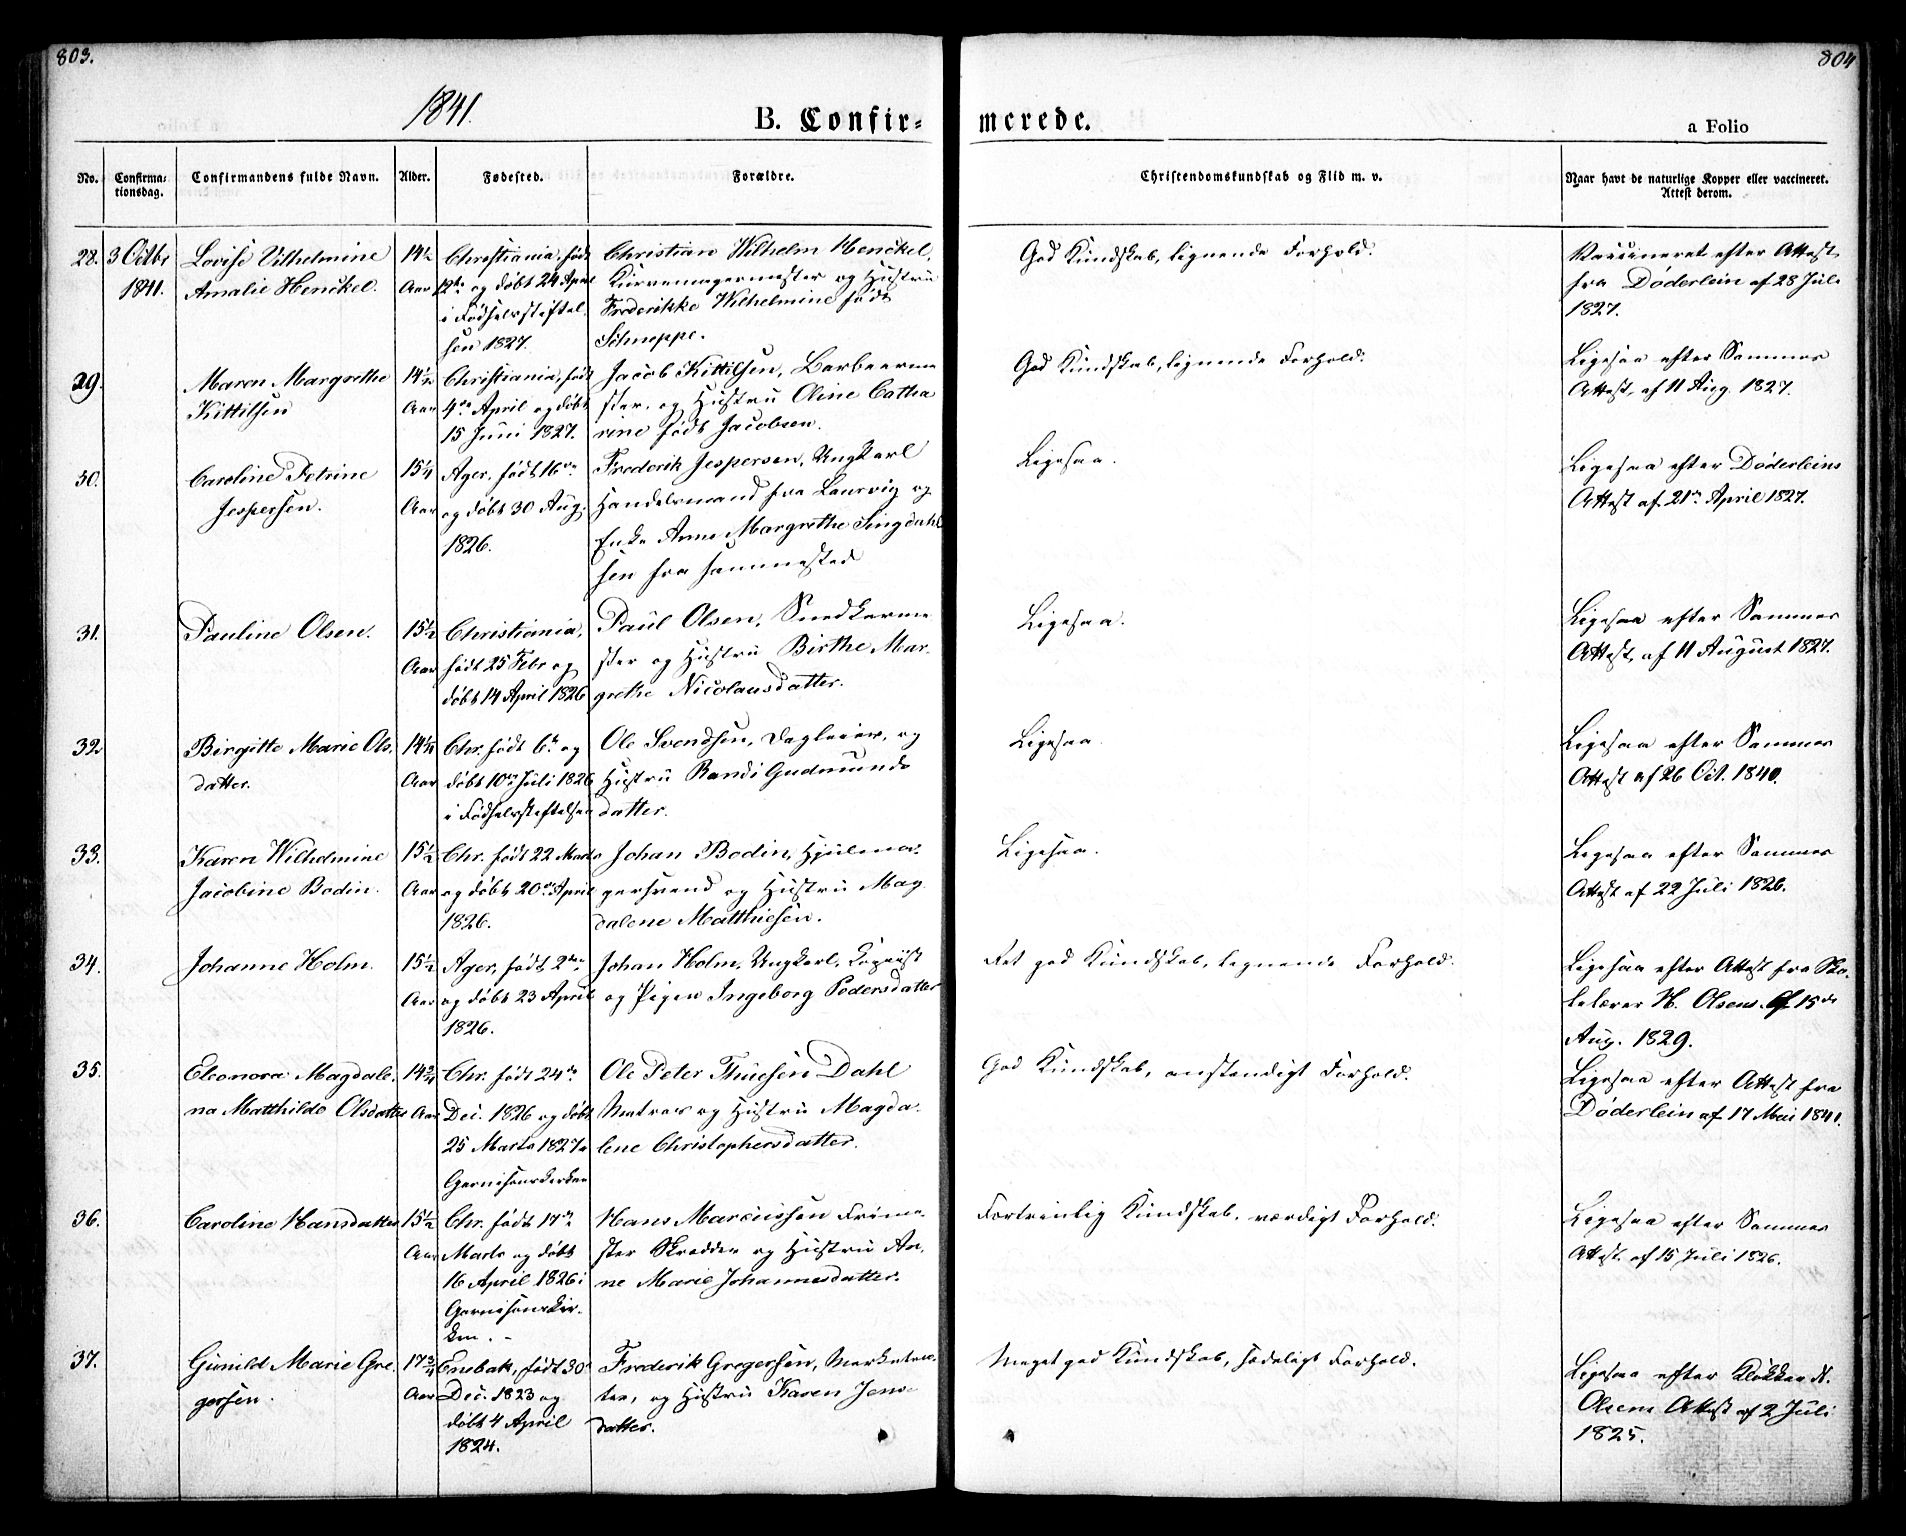 803.
804
1841.
B. Confir=
merede.
a Folio
No.
Confirma=
tionsdag.
Confirmandens fulde Navn.
Alder.
Fødested.
Forældre.
Christendomskundskab og Flid m. v.
Naar havt de naturlige Kopper eller vaccineret.
Attest derom.
28.
3 Octbr
1841.
Lovise Vilhelmine
Amalie Henckel.
14½
Aar
Christiania, født
12te og døbt 24 April
i Fødselsstiftel
sen 1827.
Christian Wilhelm Henckel,
Kurvemagermester og Hustru
Frederikke Wilhelmine født
Schneppe.
God Kundskab, lignende Forhold.
Vaccineret efter Attest
fra Døderlein af 28 Juli
1827.
29.
Maren Margrethe
Kittilsen
14½
Aar
Christiania, født
4de April og døbt
15 Juni 1827.
Jacob Kittilsen, Barbeerme
ster, og Hustru Oline Catha
rine født Jacobsen.
God Kundskab, lignende Forhold.
Ligesaa efter Sammes
Attest, af 11 Aug. 1827.
30.
Caroline Petrine
Jespersen.
15¼
Aar
Ager, født 16de
og døbt 30 Aug.
1826.
Frederik Jespersen, Ungkarl
Handelsmand fra Laurvig og
Enke Anne Margrethe Singdahl
sen fra sammested
Ligesaa.
Ligesaa efter Døderleins
Attest af 21de April 1827.
31.
Pauline Olsen.
15½
Aar
Christiania,
født 25 Febr og
døbt 14 April 1826
Paul Olsen, Snedkerme
ster og Hustru Birthe Mar-
grethe Nicolausdatter.
Ligesaa.
Ligesaa efter Sammes
Attest, af 11 August 1827.
32
Birgitte Marie Ols.
datter.
Aar
Chr. født 6te og
døbt 10de Juli 1826
i Fødselsstiftelsen
Ole Svendsen, Dagleier, og
Hustru Randi Gudmunds
datter.
Ligesaa
Ligesaa efter Sammes
Attest af 26 Oct. 1840.
33.
Karen Wilhelmine
Jacobine Bodin.
15½
Aar
Chr. født 22 Marts
og døbt 20de April
1826.
Johan Bodin, Hjulma-
gersvend og Hustru Mag
dalene Matthiesen.
Ligesaa.
Ligesaa efter Sammes
Attest af 22 Juli 1826.
34.
Johanne Holm.
15½
Aar
Ager, født 2den
og døbt 23 April
1826.
Johan Holm, Ungkarl, Copiist
og Pigen Ingeborg Pedersdatter
Ret god Kundskab, lignende Forhold.
Ligesaa efter Attest fra Sko-
lelærer H. Olsens af 15de
Aug. 1829.
35.
Eleonora Magdale.
na Matthilde Olsdatter
14¾
Aar
Chr. født 24de
Dec. 1826 og døbt
25 Marts 1827 i
Garnisonskirken
Ole Peter Thuesen Dahl
Matros og Hustru Magda-
lene Christophersdatter.
God Kundskab, anstændigt Forhold.
Ligesaa efter Attest fra
Døderlein af 17 Mai 1841.
36.
Caroline Hansdatter
15½
Aar
Chr. født 17de
Marts og døbt
16 April 1826 i
Garnisonskir-
ken. -
Hans Marcussen Frime-
ster Skrædder og Hustru An-
ne Marie Johannesdatter.
Fortrinlig Kundskab, værdigt Forhold.
Ligesaa efter Sammes
Attest. af 15 Juli 1826.
37.
Gunild Marie Gre.
gersen.
17¾
Aar
Enebak, født 30
Dec. 1823 og
døbt 4 April
1824.
Frederik Gregersen, Marketen-
ter, og Hustru Karen Jens-
datter.
Meget god Kundskab, sædeligt Forhold.
Ligesaa efter Klokker N.
Olsens Attest af 2 Juli
1825.